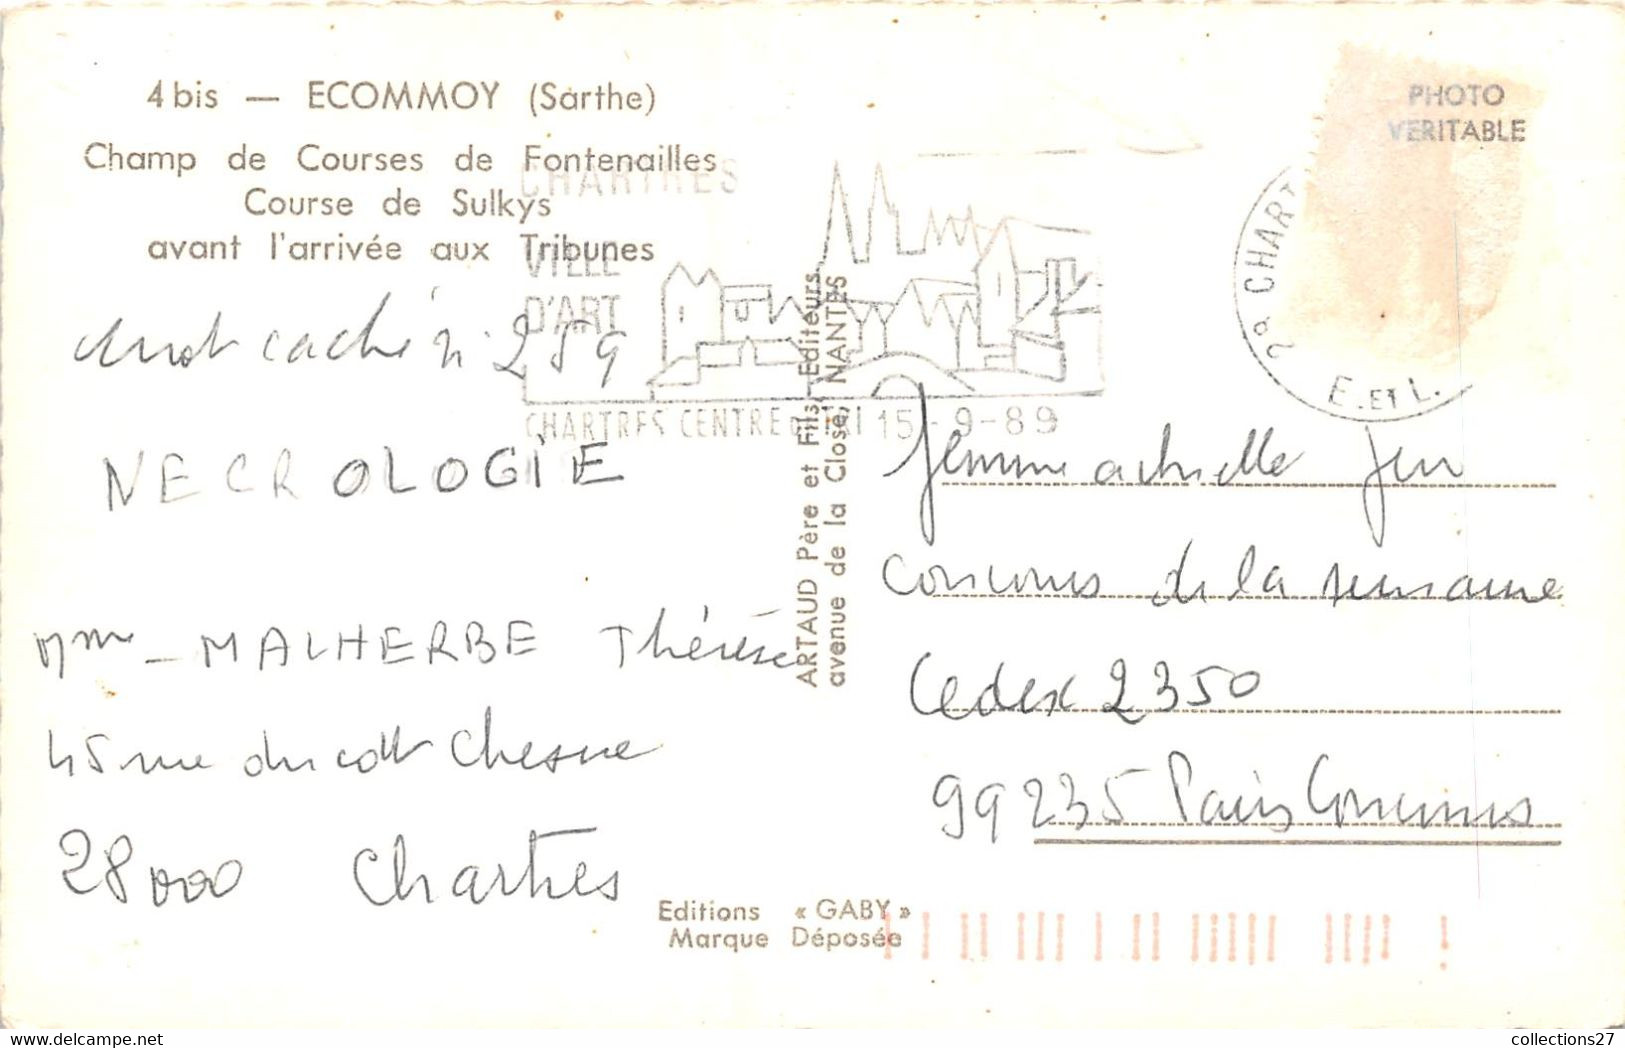 4 bis — ECOMMOY (Sarthe)
Champ de Courses de Fontenailles
Course de Sulkys
avant l'arrivée aux Tribunes
PHOTO
VERITABLE
CHARTRES
VILLE
D'ART
CHARTRES CENTRE 15-9-89
28 CHART
E. ET L.
mot caché n° 259
NECROLOGIE
Mme - MALHERBE Thérèse
45 rue du Chesne
28000 Chartres
ARTAUD Père et Fils, Editeurs
avenue de la Close, NANTES
femme actuelle Jeu
Concours de la semaine
Cedex 2350
99235 Paris Concours
Editions « GABY »
Marque Déposée
collections27